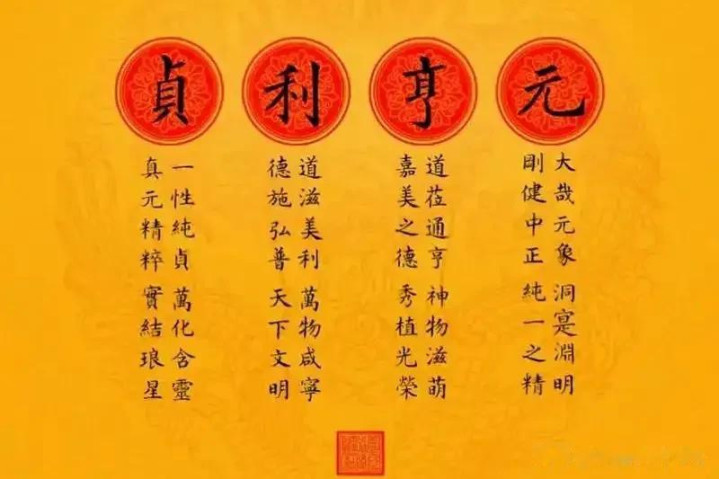 元
大哉元象 洞㝠淵明
剛健中正 純一之精
亨
道莅通亨 神物滋萌
嘉美之德 秀植光榮
利
道滋美利 萬物咸寧
德施弘普 天下文明
貞
一性純貞 萬化含靈
真元精粹 實結琅星